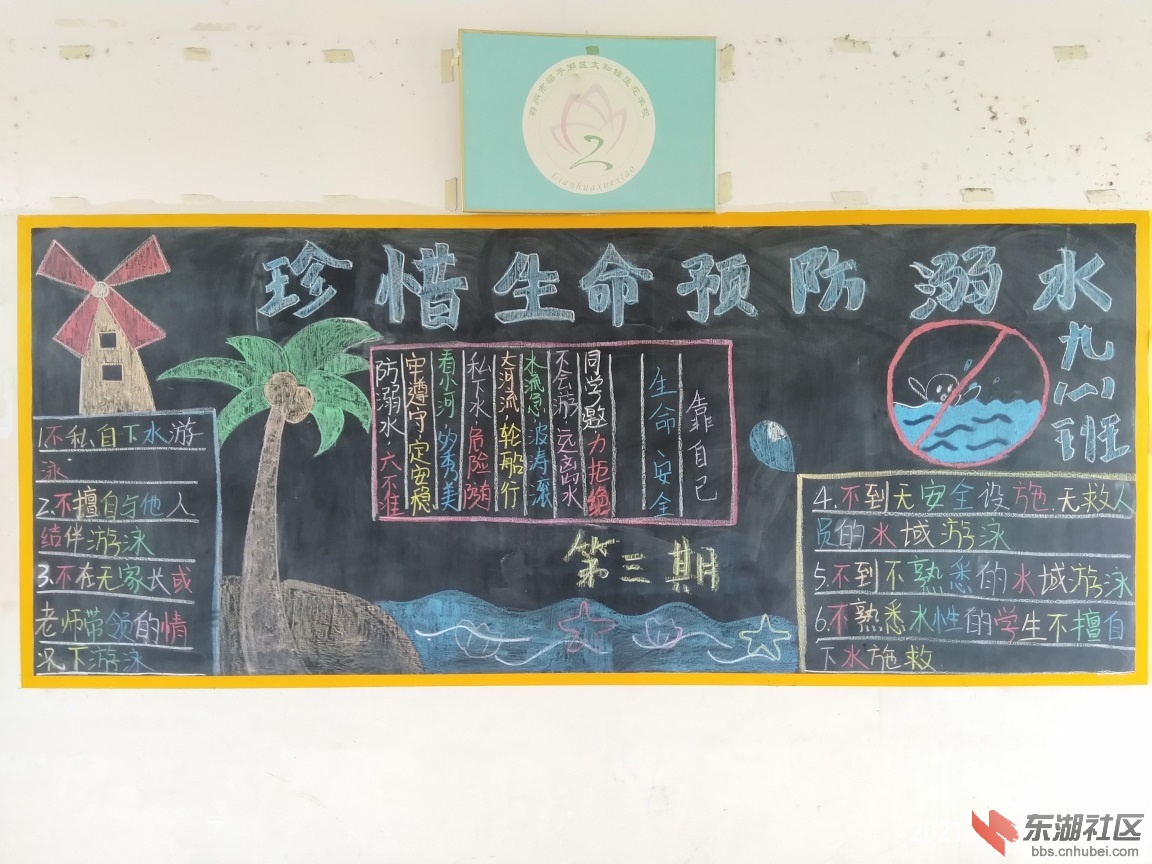 鄂州市梁子湖区太和镇莲花学校
2
Lianhuaxuexiao
珍惜生命预防溺水
九
班
1.不私自下水游
泳.
2.不擅自与他人
结伴游泳
3.不在无家长或
老师带领的情
况下游泳
防溺水,六不准
牢遵守,定安稳
看小河,妙秀美
私下水,危险随
大河流,轮船行
水流急,波涛滚
不会游,远离水
同学邀,力拒绝
生命安全
靠自己
第三期
4.不到无安全设施.无救人
员的水域游泳
5.不到不熟悉的水域游泳
6.不熟悉水性的学生不擅自
下水施救.
东湖社区
bbs.cnhubei.com